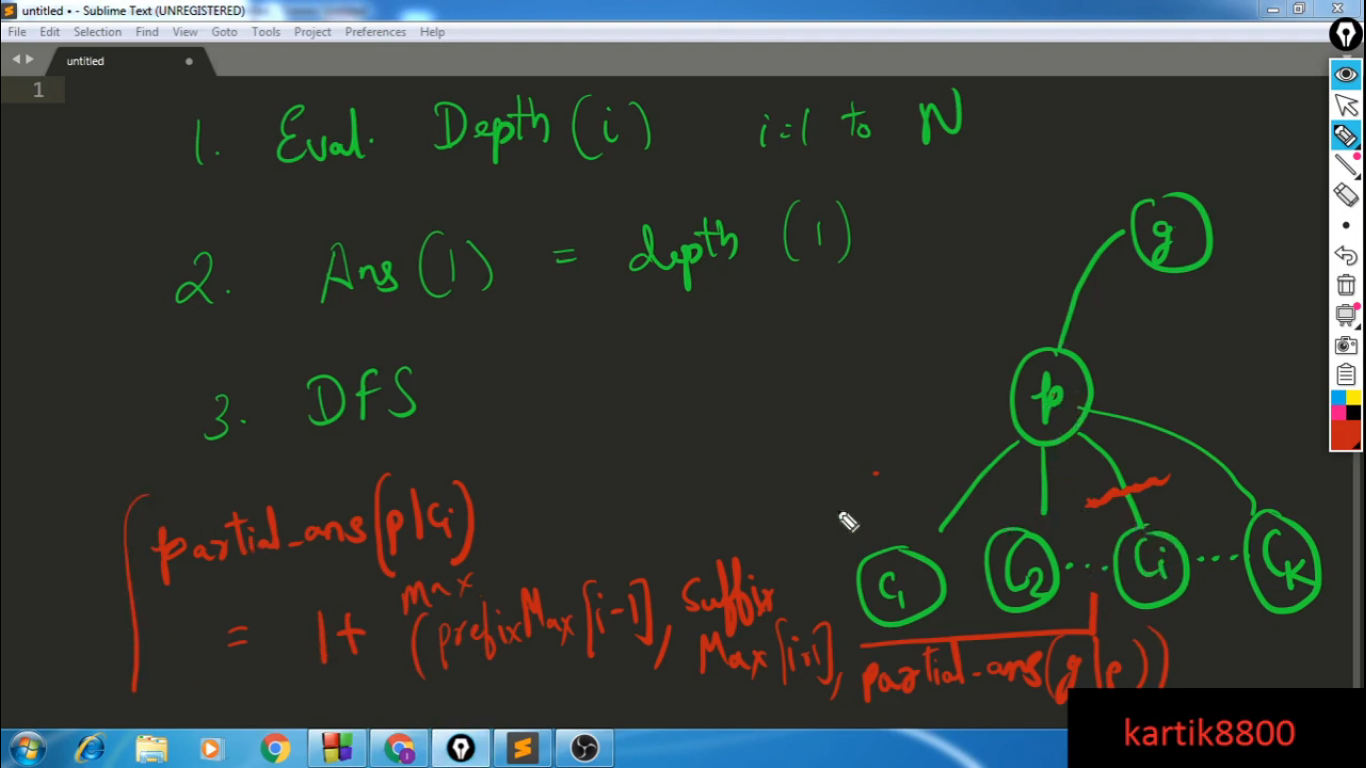 untitled • - Sublime Text (UNREGISTERED)
File Edit Selection Find View Goto Tools Project Preferences Help
untitled
1
1. Eval. Depth (i) i=1 to N
2. Ans (1) = depth (1)
3. DFS
g
p
C1 C2 ... Ci ... CK
partial_ans(p|Ci)
= 1+ max (prefixMax[i-1], suffix Max[i+1], partial_ans(g|p))
kartik8800